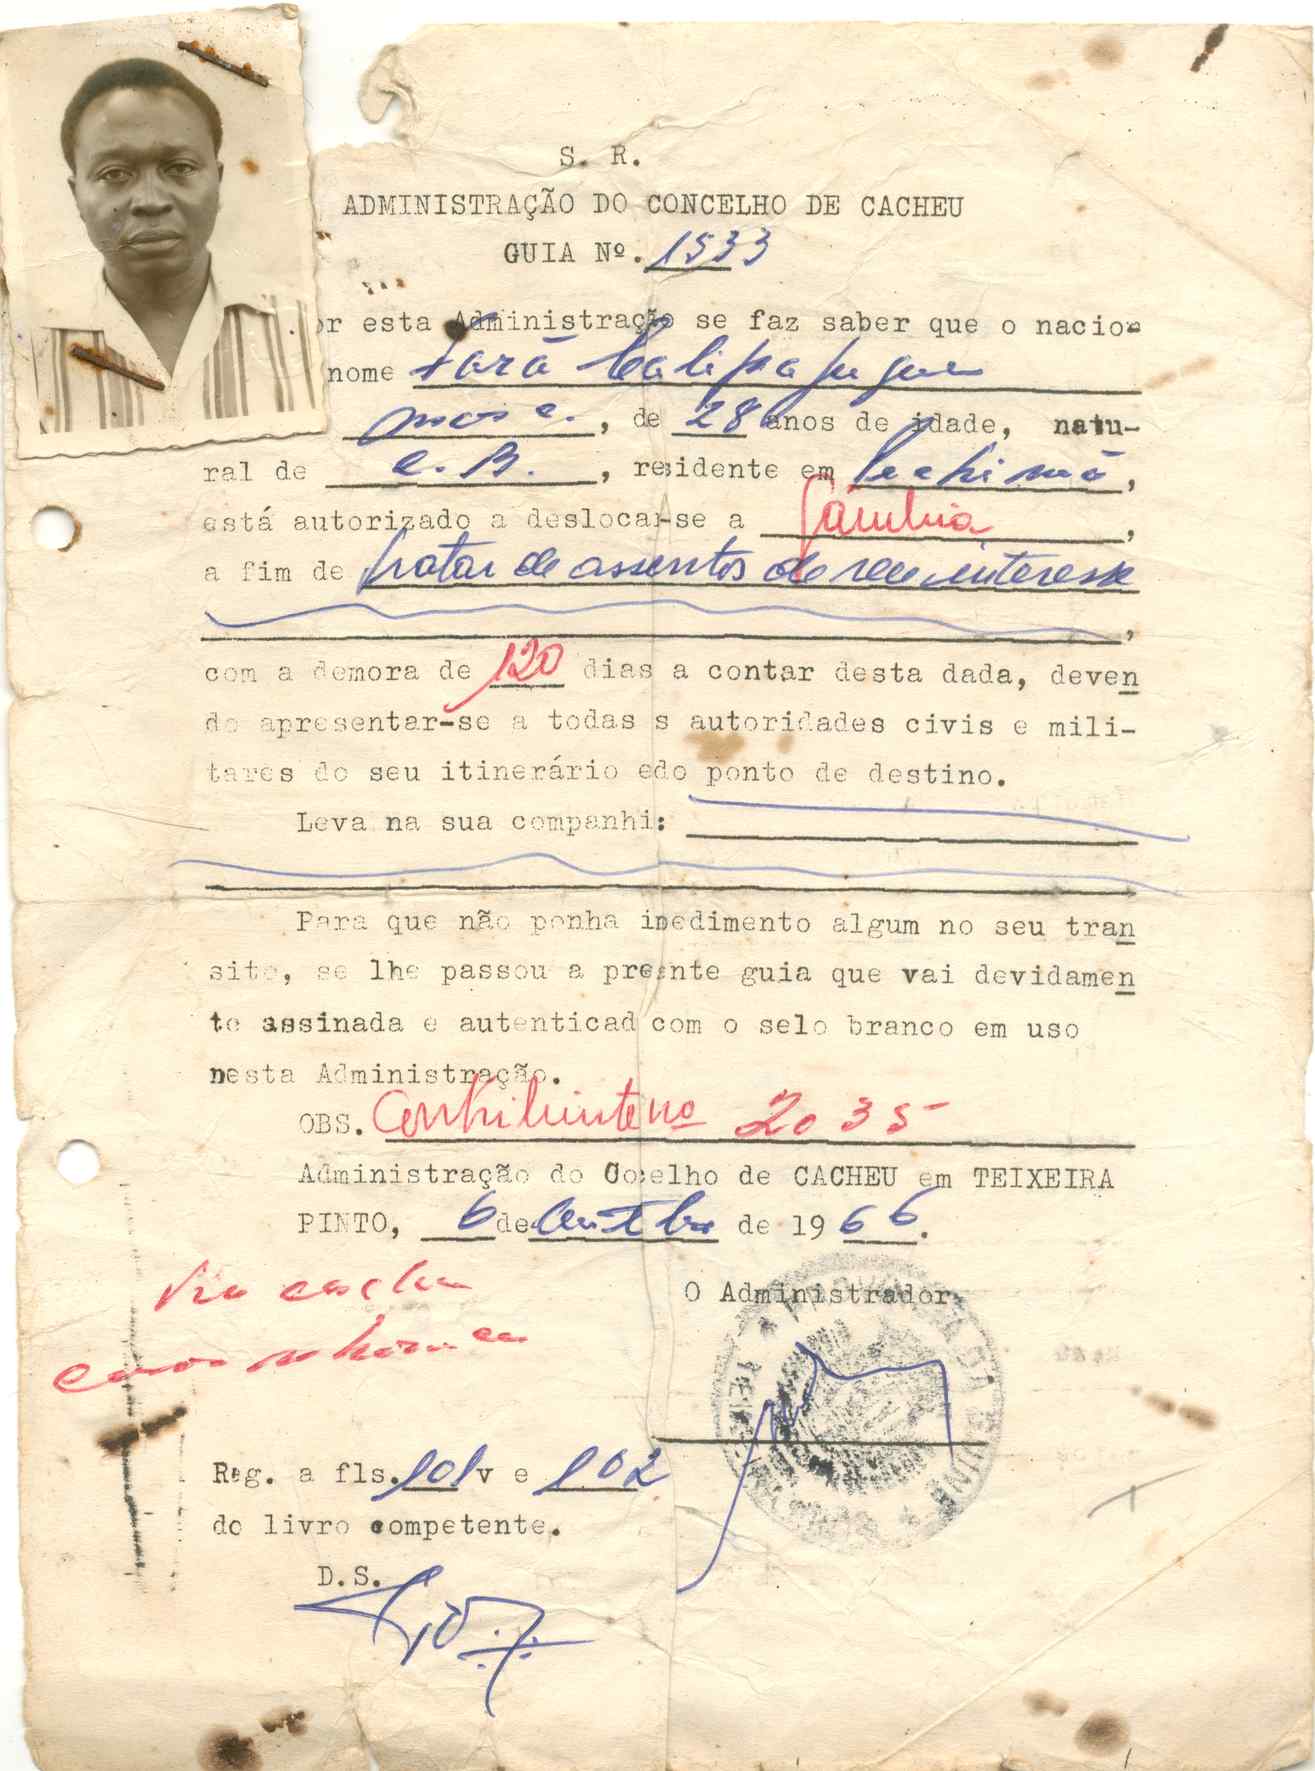 S. R.
ADMINISTRAÇÃO DO CONCELHO DE CACHEU
GUIA Nº. 1533
or esta Administração se faz saber que o nacio-
nome
, de 28 anos de idade, natu-
ral de , residente em ,
está autorizado a deslocar-se a Gâmbia,
a fim de tratar de assuntos de seu interesse
,
com a demora de 120 dias a contar desta dada, deven
do apresentar-se a todas s autoridades civis e mili-
tares do seu itinerário edo ponto de destino.
Leva na sua companhi:
Para que não ponha inedimento algum no seu tran
sito, se lhe passou a presnte guia que vai devidamen
te assinada e autenticad com o selo branco em uso
nesta Administração.
OBS. Contribuinte nº 2035
Administração do Coselho de CACHEU em TEIXEIRA
PINTO, 6 de Outubro de 1966.
O Administrador
Reg. a fls. 101 v e 102
do livro competente.
D.S.